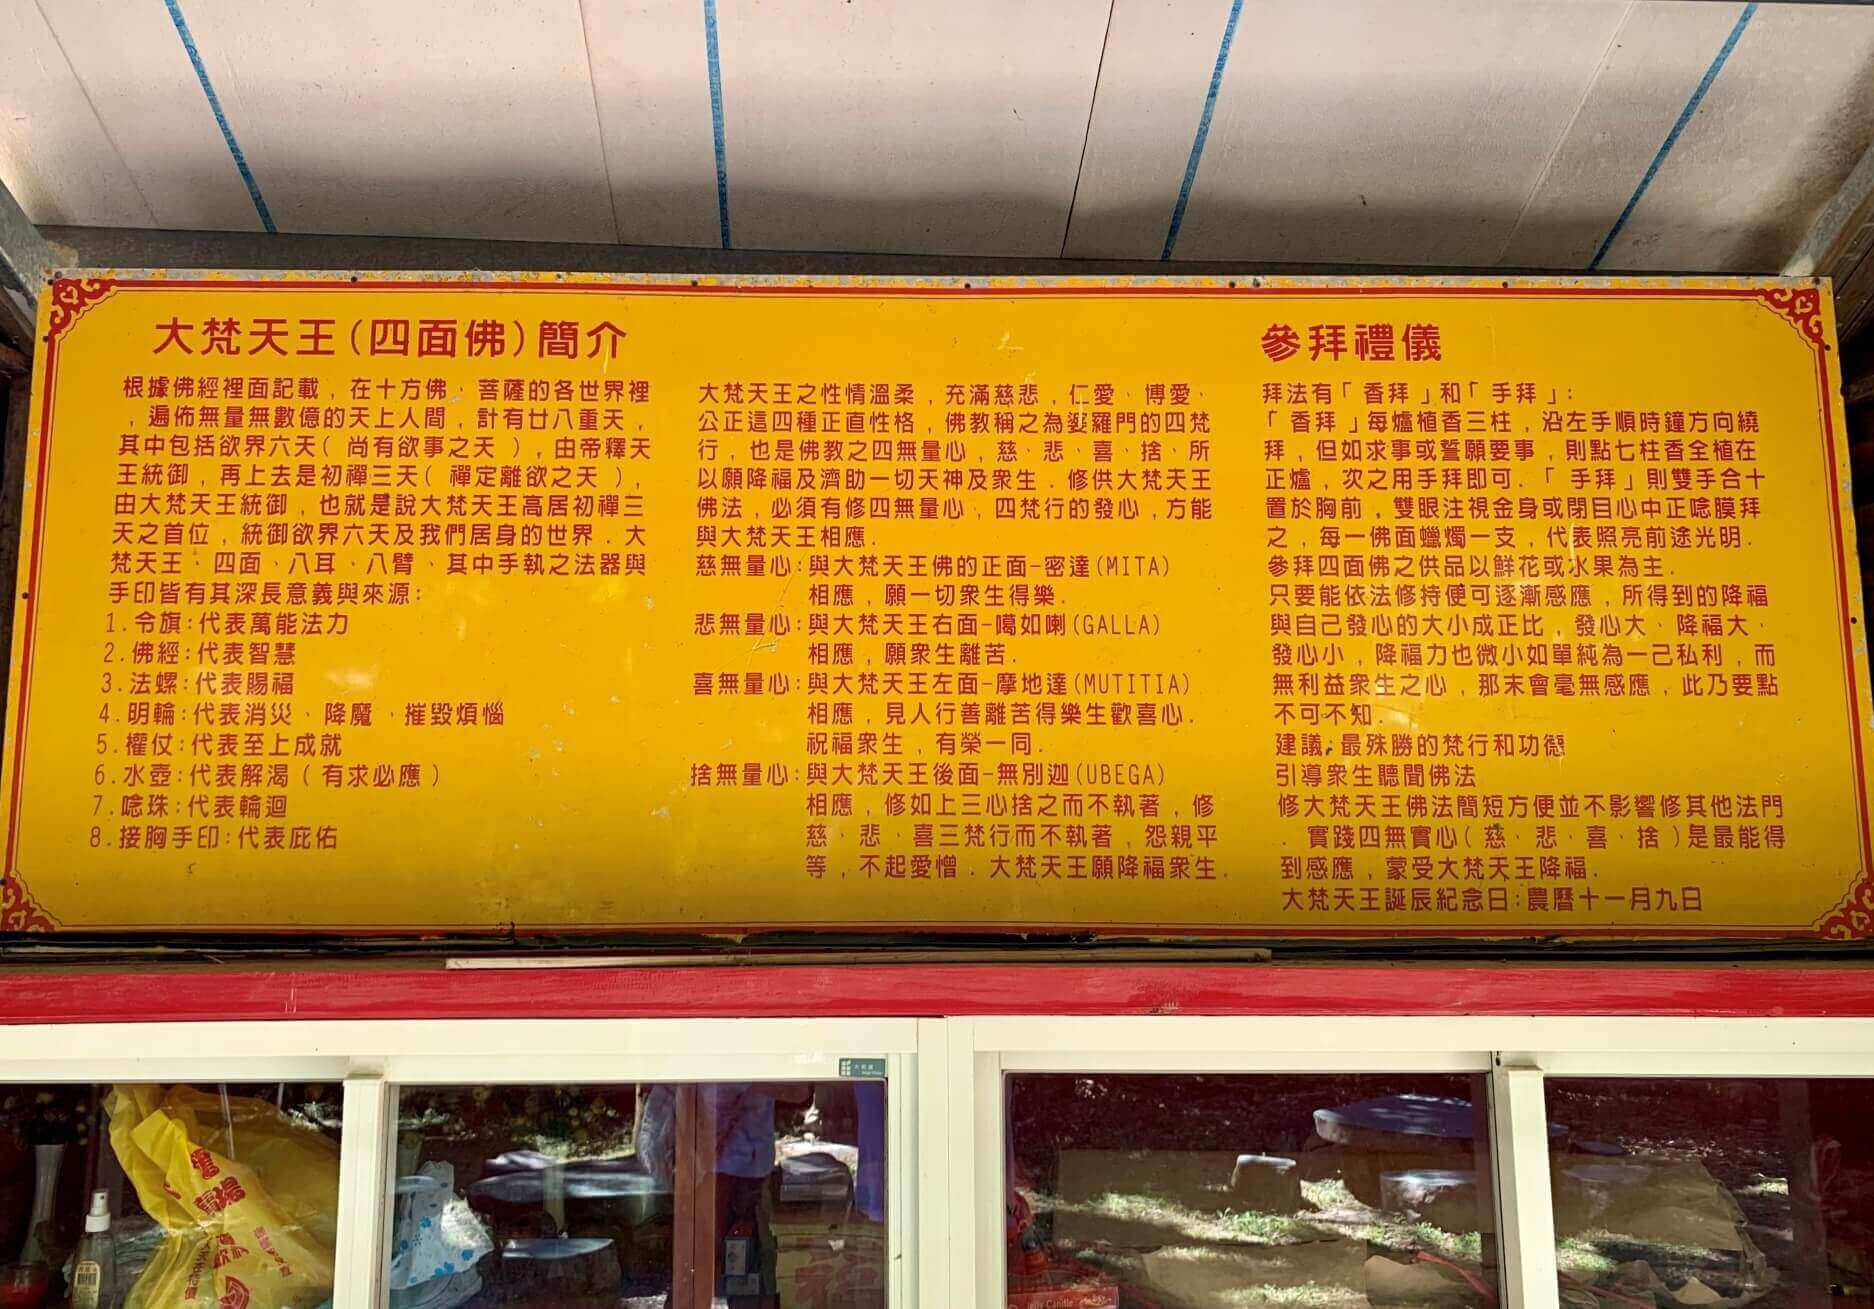 大梵天王(四面佛)簡介
根據佛經裡面記載，在十方佛、菩薩的各世界裡
，遍佈無量無數億的天上人間，計有廿八重天，
其中包括欲界六天( 尚有欲事之天 )，由帝釋天
王統御，再上去是初禪三天( 禪定離欲之天 )，
由大梵天王統御，也就是說大梵天王高居初禪三
天之首位，統御欲界六天及我們居身的世界．大
梵天王、四面、八耳、八臂、其中手執之法器與
手印皆有其深長意義與來源:
1.令旗:代表萬能法力
2.佛經:代表智慧
3.法螺:代表賜福
4.明輪:代表消災、降魔、摧毀煩惱
5.權仗:代表至上成就
6.水壺:代表解渴 ( 有求必應 )
7.唸珠:代表輪迴
8.接胸手印:代表庇佑
大梵天王之性情溫柔，充滿慈悲，仁愛、博愛、
公正這四種正直性格，佛教稱之為婆羅門的四梵
行，也是佛教之四無量心，慈、悲、喜、捨、所
以願降福及濟助一切天神及衆生．修供大梵天王
佛法，必須有修四無量心，四梵行的發心，方能
與大梵天王相應．
慈無量心:與大梵天王佛的正面-密達(MITA)
相應，願一切衆生得樂．
悲無量心:與大梵天王右面-噶如喇(GALLA)
相應，願衆生離苦．
喜無量心:與大梵天王左面-摩地達(MUTITIA)
相應，見人行善離苦得樂生歡喜心．
祝福衆生，有榮一同．
捨無量心:與大梵天王後面-無別迦(UBEGA)
相應，修如上三心捨之而不執著，修
慈、悲、喜三梵行而不執著，怨親平
等，不起愛憎．大梵天王願降福衆生．
參拜禮儀
拜法有「 香拜 」和「 手拜 」:
「 香拜 」每爐植香三柱，沿左手順時鐘方向繞
拜，但如求事或誓願要事，則點七柱香全植在
正爐，次之用手拜即可．「 手拜 」則雙手合十
置於胸前，雙眼注視金身或閉目心中正唸膜拜
之，每一佛面蠟燭一支，代表照亮前途光明．
參拜四面佛之供品以鮮花或水果為主．
只要能依法修持便可逐漸感應，所得到的降福
與自己發心的大小成正比，發心大、降福大、
發心小，降福力也微小如單純為一己私利，而
無利益衆生之心，那末會毫無感應，此乃要點
不可不知．
建議:最殊勝的梵行和功德
引導衆生聽聞佛法
修大梵天王佛法簡短方便並不影響修其他法門
．實踐四無實心( 慈、悲、喜、捨 )是最能得
到感應，蒙受大梵天王降福．
大梵天王誕辰紀念日:農曆十一月九日
Jelly Candle